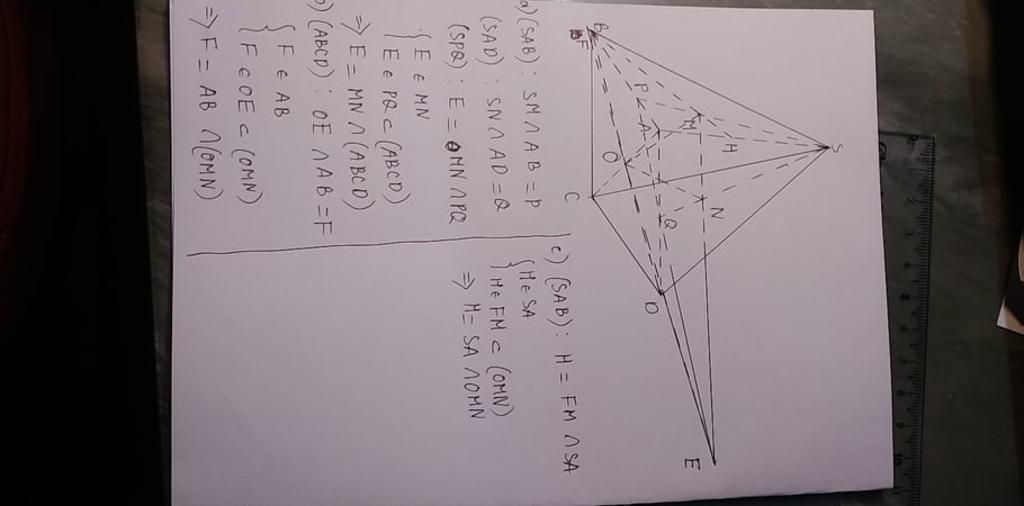 S
B
F
P
M
H
A
O
N
Q
C
D
E
a) (SAB) : SM ∩ AB = P
(SAD) : SN ∩ AD = Q
(SPQ) : E = MN ∩ PQ
{ E ∈ MN
{ E ∈ PQ ⊂ (ABCD)
⇒ E = MN ∩ (ABCD)
b) (ABCD) : OE ∩ AB = F
{ F ∈ AB
{ F ∈ OE ⊂ (OMN)
⇒ F = AB ∩ (OMN)
c) (SAB) : H = FM ∩ SA
{ H ∈ SA
{ H ∈ FM ⊂ (OMN)
⇒ H = SA ∩ OMN